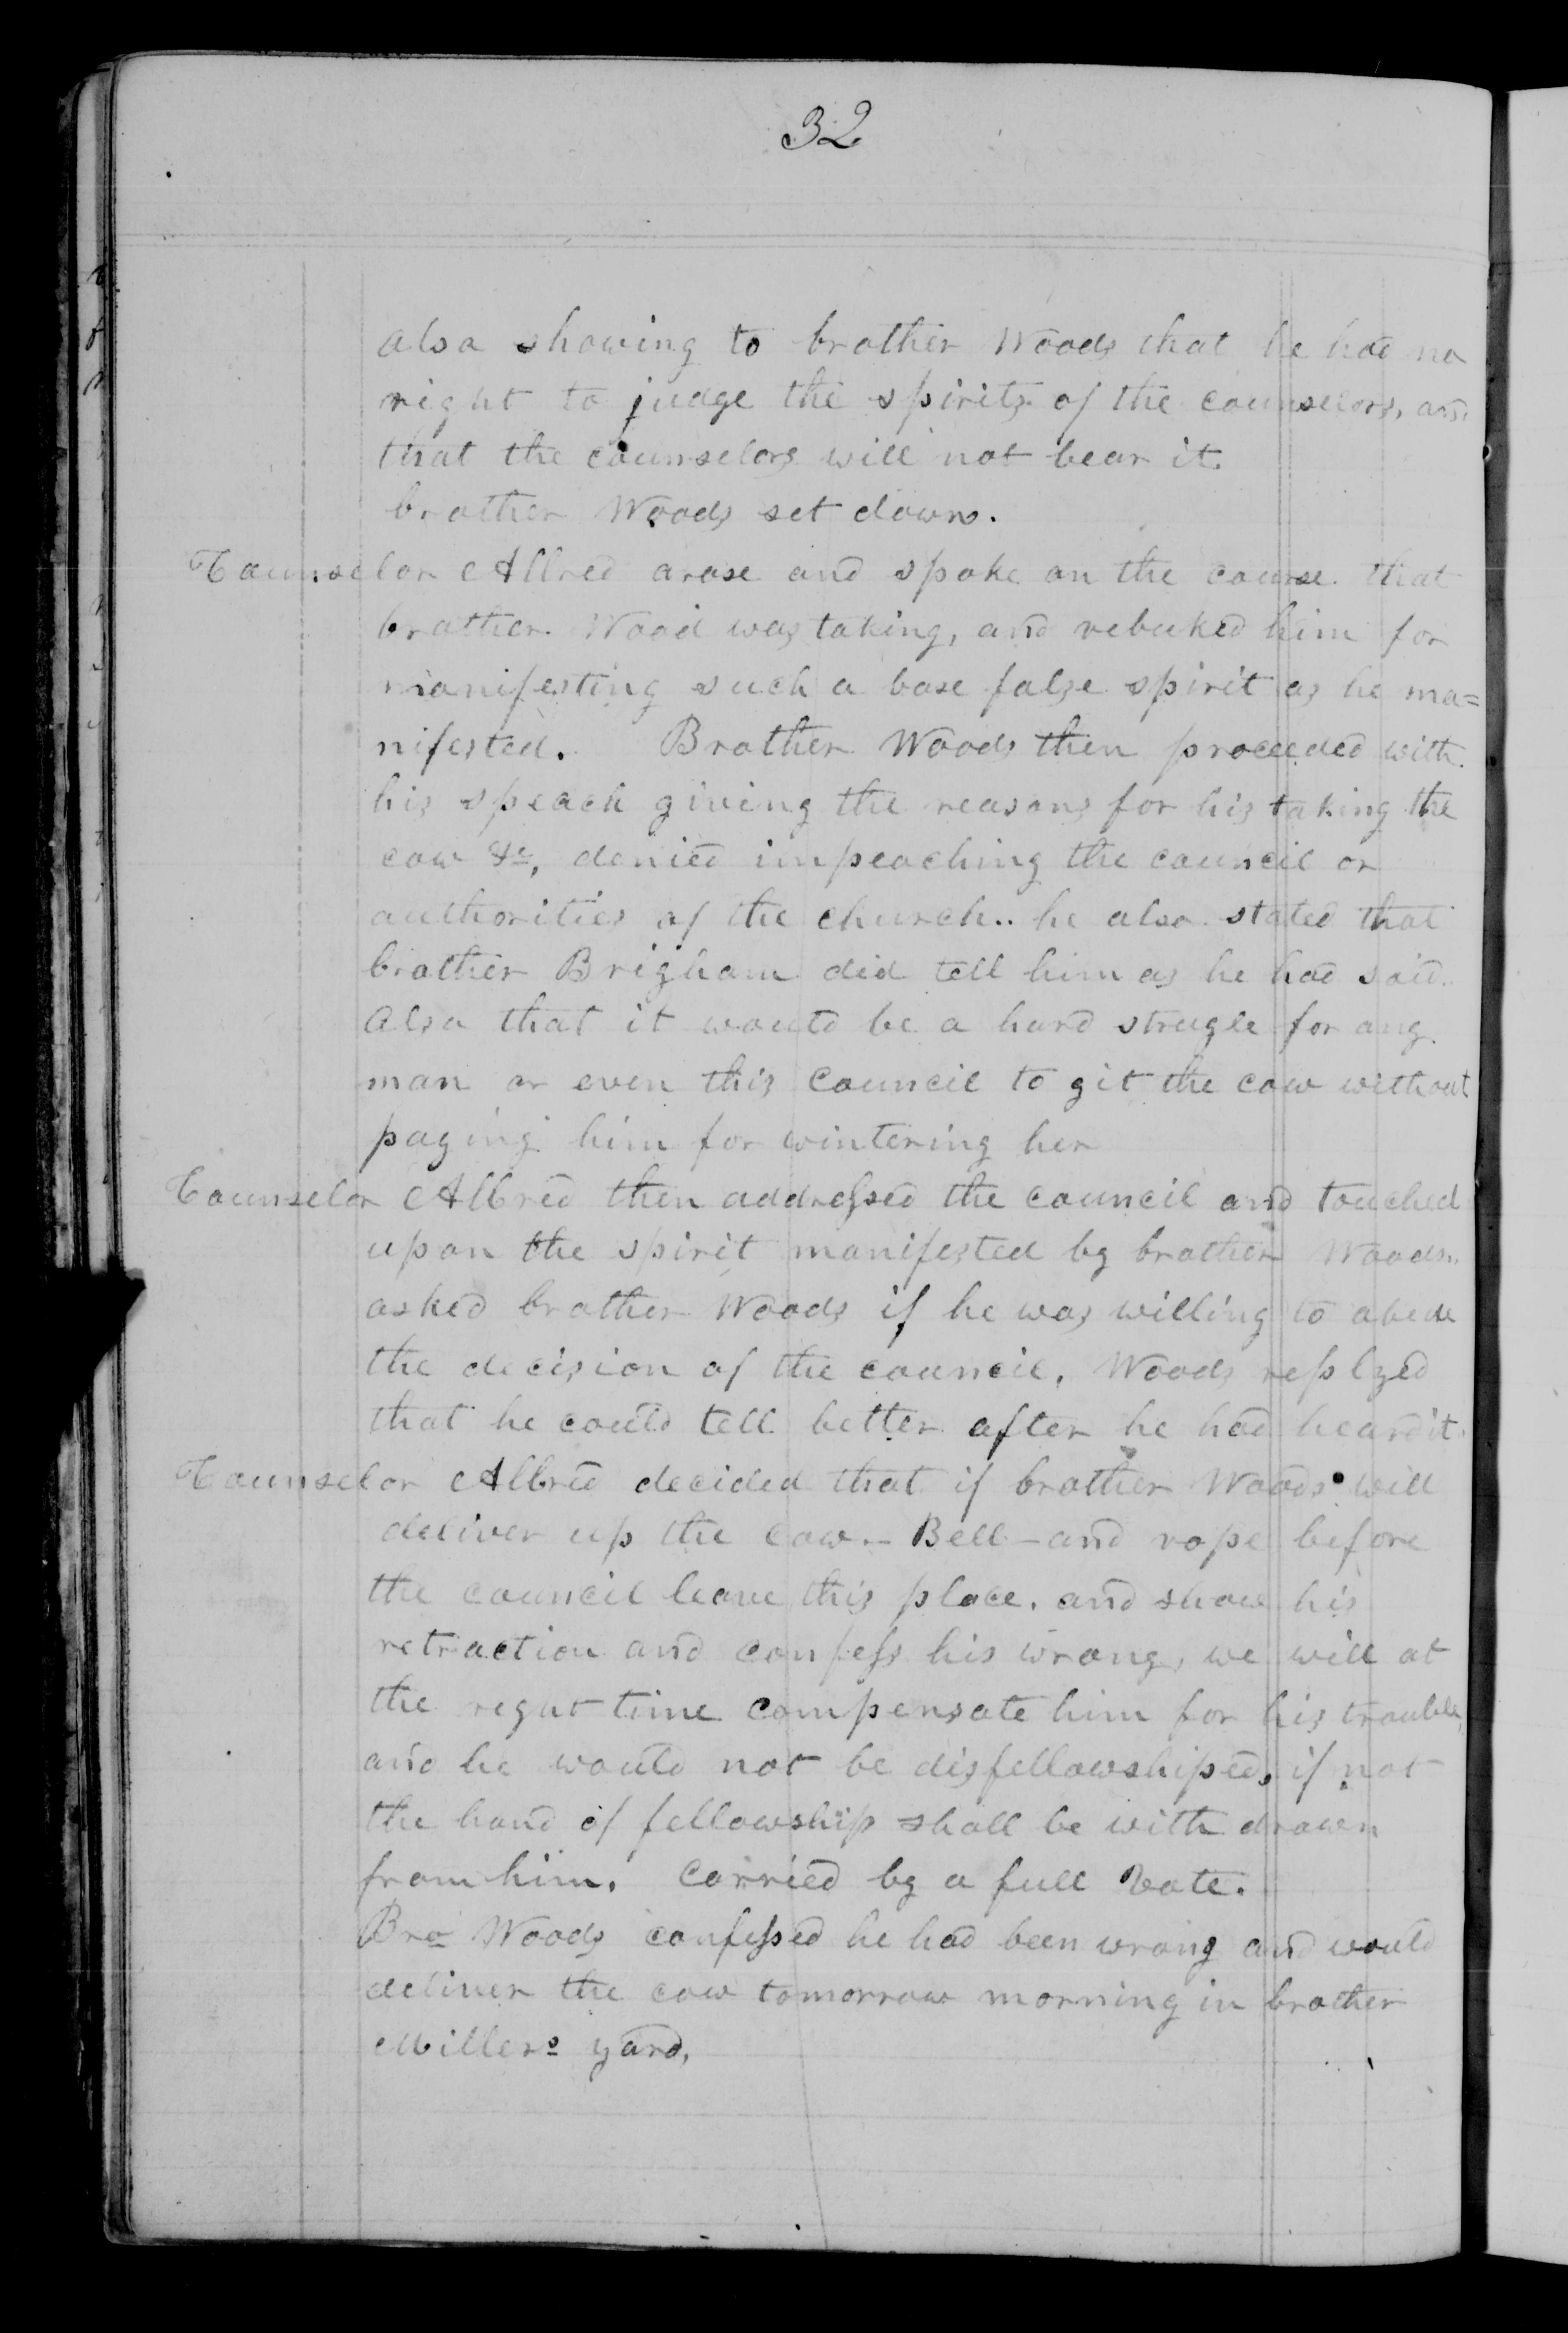 32
also showing to brother Woods that he had no
right to judge the spirits of the counselors, and
that the counselors will not bear it.
brother Woods set down.
Counselor Allred arose and spoke on the course that
brother Wood was taking, and rebuked him for
manifesting such a base false spirit as he ma=
nifested. Brother Woods then proceeded with
his speach giving the reasons for his taking the
cow &c, denied impeaching the council or
authorities of the church.. he also stated that
brother Brigham did tell him as he had said.
Also that it would be a hard strugle for any
man or even this Council to git the cow without
paying him for wintering her
Counselor Allred then addressed the council and touched
upon the spirit manifested by brother Woods..
asked brother Woods if he was willing to abide
the decision of the council, Woods replyed
that he could tell better after he had heard it.
Counselor Allred decided that if brother Woods will
deliver up the cow - Bell - and rope before
the council leave this place. and show his
retraction and confess his wrong, we will at
the right time compensate him for his trouble,
and he would not be disfellowshiped, if not
the hand of fellowship shall be with drawn
from him. Carried by a full Vote.
Bro Woods confessed he had been wrong and would
deliver the cow tomorrow morning in brother
Millers yard.